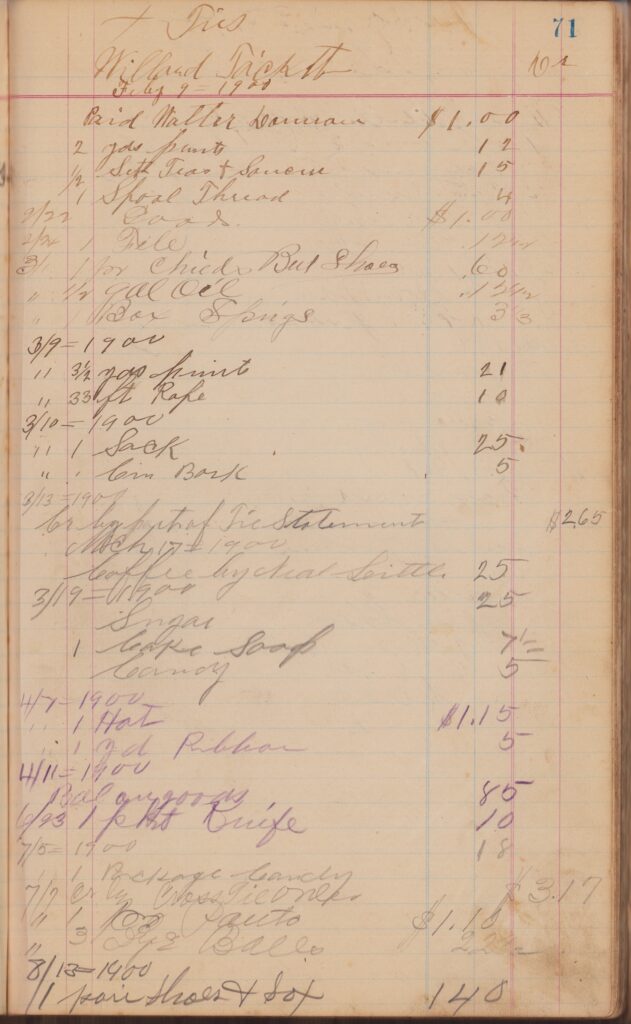 + Ties
71
Willard Tackett Dr
Feby 9 = 1900
Paid Walter $1.00
2 yds print 12
1/2 Sett Teas + Saucers 15
1 Spool Thread 4
2/22 Goods $1.00
2/24 1 File .12 1/2
3/1 1 pr Childs Shoes 60
" 1/2 gal Oil .12 1/2
" 1 Box 
3/9 = 1900
" 3 1/2 yds print 21
" 33 ft Rope 10
3/10 = 1900
" 1 Sack 25
" 1 5
3/13 = 1900
Cr by part of Tie Statement $2.65
Mch 17 = 1900
Coffee by Little 25
3/19 = 1900 25
Sugar
1 Cake Soap 7 1/2
Candy 5
4/7 = 1900
" 1 Hat $1.15
" 1 yd Ribbon 5
4/11 = 1900
Bal on goods 85
6/23 1 Knife 10
7/5 = 1900 18
1 Package Candy
7/7 Cr by Cross Ties $3.17
" 1 pr Pants $1.10
" 3 Balls 22 1/2
8/13 = 1900
1 pair Shoes + Sox 140